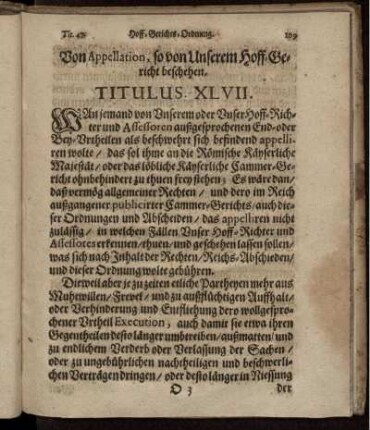 Tit. 47. Hoff-Gerichts-Ordnung. 109
Von Appellation, so von Unserem Hoff-Ge-
richt beschehen.
TITULUS. XLVII.
WAn jemand von Unserem oder Unser Hoff-Rich-
ter und Assessoren außgesprochenen End-oder
Bey-Urtheilen als beschwehrt sich befindend appelli-
ren wolte/ das sol ihme an die Römische Käyserliche
Majestät/ oder das löbliche Käyserliche Cammer-Ge-
richt ohnbehindert zu thuen frey stehen; Es wäre dan/
daß vermög allgemeiner Rechten/ und dero im Reich
außgangener publicirter Cammer-Gerichts/ auch die-
ser Ordnungen und Abscheiden/ das appelliren nicht
zulässig/ in welchen Fällen Unser Hoff-Richter und
Assessores erkennen/thuen/und geschehen lassen sollen/
was sich nach Inhalt der Rechten/ Reichs-Abschieden/
und dieser Ordnung wolte gebühren.
Dieweil aber je zu zeiten etliche Partheyen mehr aus
Muhewillen/ Frevel/ und zu außflüchtigen Auffhalt/
oder Verhinderung und Entfliehung dero wollgespro-
chener Urtheil Execution; auch damit sie etwa ihren
Gegentheilen desto länger umbtreiben/außmatten/und
zu endlichem Verderb oder Verlassung der Sachen/
oder zu ungebührlichen nachtheiligen und beschwerli-
chen Verträgen dringen/ oder desto länger in Niessung
O 3 der